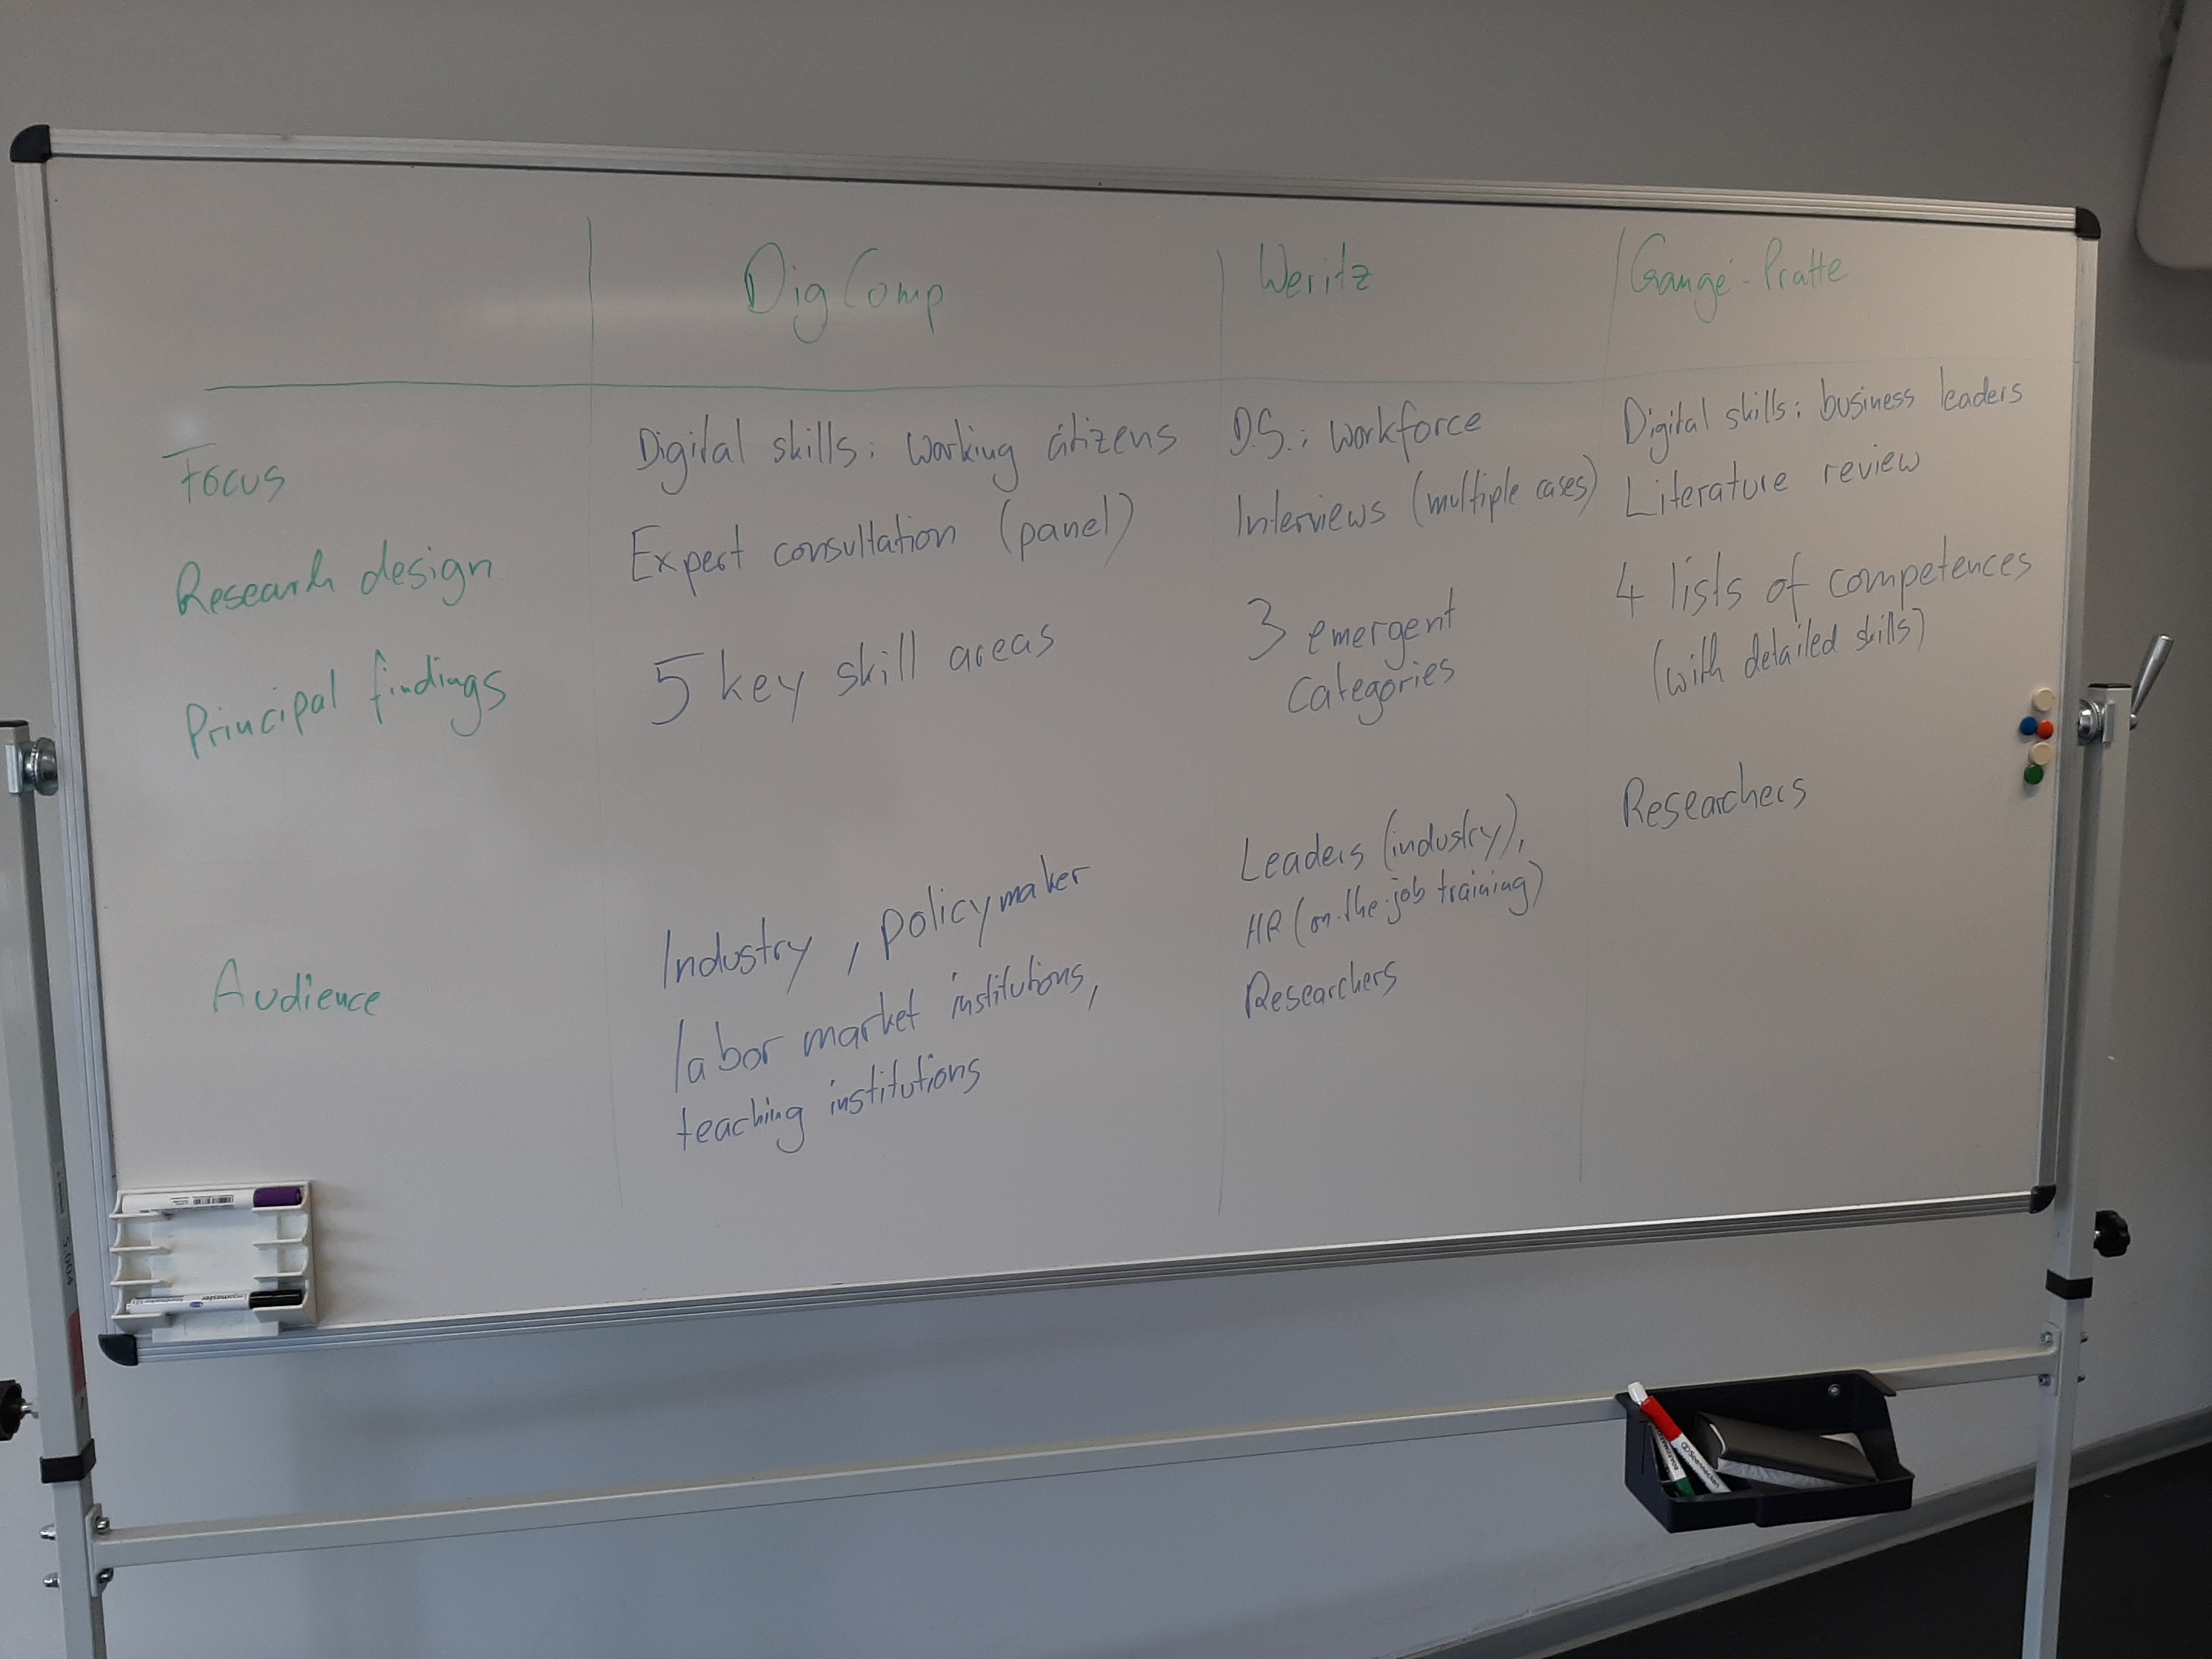 DigComp
Weritz
Gangé-Pratte
Focus
Digital skills: working citizens
D.S.: workforce
Digital skills: business leaders
Research design
Expert consultation (panel)
Interviews (multiple cases)
Literature review
Principal findings
5 key skill areas
3 emergent
categories
4 lists of competences
(with detailed skills)
Audience
Industry, policymaker
labor market institutions,
teaching institutions
Leaders (industry),
HR (on-the-job training)
Researchers
Researchers